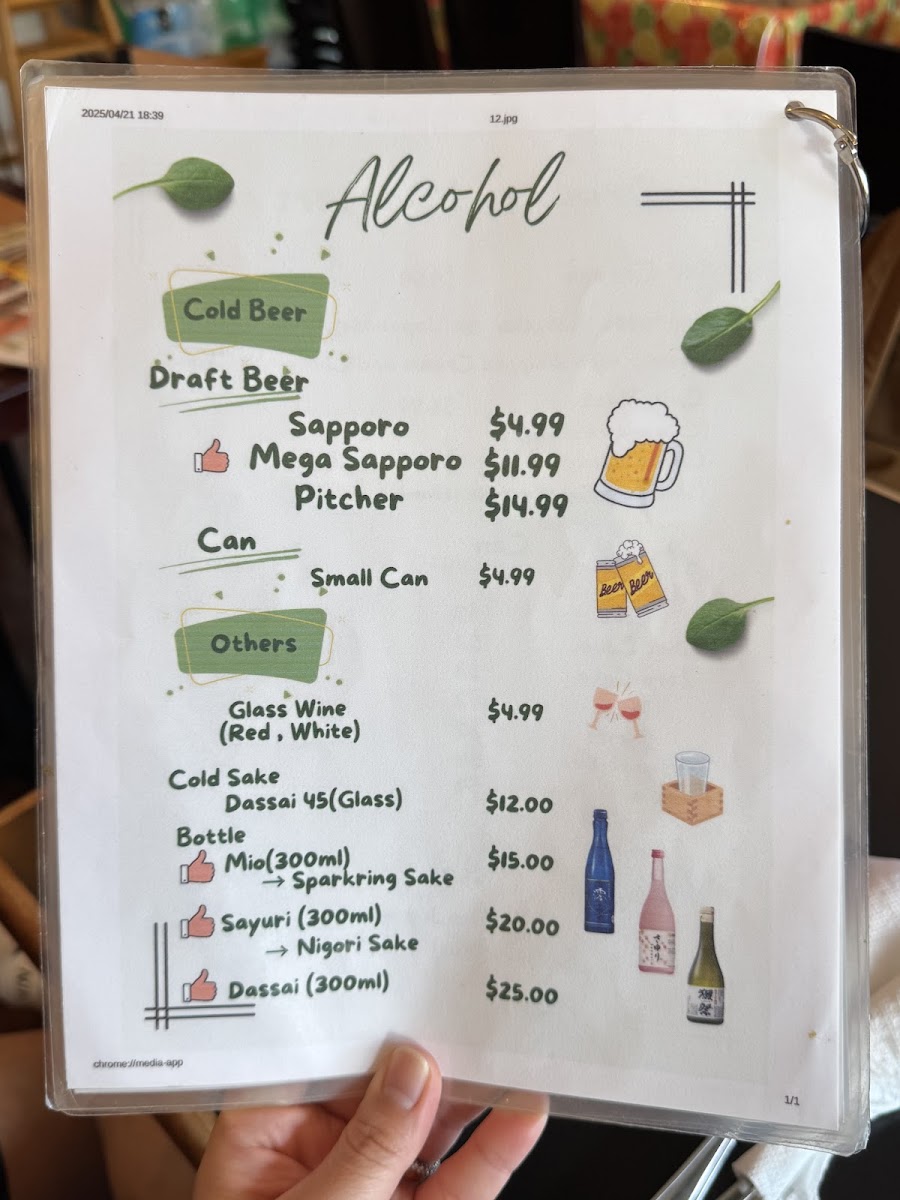 2025/04/21 18:39 12.jpg
Alcohol
Cold Beer
Draft Beer
Sapporo $4.99
Mega Sapporo $11.99
Pitcher $14.99
Can
Small Can $4.99
Beer Beer
Others
Glass Wine $4.99
(Red , White)
Cold Sake
Dassai 45(Glass) $12.00
Bottle
Mio(300ml) $15.00
→ Sparkring Sake
Sayuri (300ml) $20.00
→ Nigori Sake
さゆり
Dassai (300ml) $25.00
獺祭
chrome://media-app
1/1